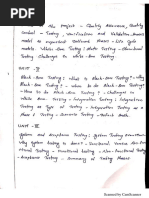 of the project - Quality Assurance, Quality
Control - Testing, Verification and Validation, Process
model to represent Different Phases - Life Cycle
models. White-Box Testing: Static Testing - Structural
Testing challenges in white-box Testing.
UNIT - II
Black-Box Testing: What is Black-Box Testing? - Why
Black-Box Testing? - When to do Black-Box
Testing? - How to do Black-Box Testing? - Challenges in
White-Box Testing - Integration Testing: Integration
Testing as Type of Testing - Integration Testing as a
Phase of Testing - Scenario Testing - Defect Bash.
UNIT - III
System and Acceptance Testing: System Testing Overview -
Why System testing is done? - Functional versus Non-
functional Testing - Functional testing - Non-functional Testing
- Acceptance Testing - Summary of Testing Phases
Scanned by CamScanner